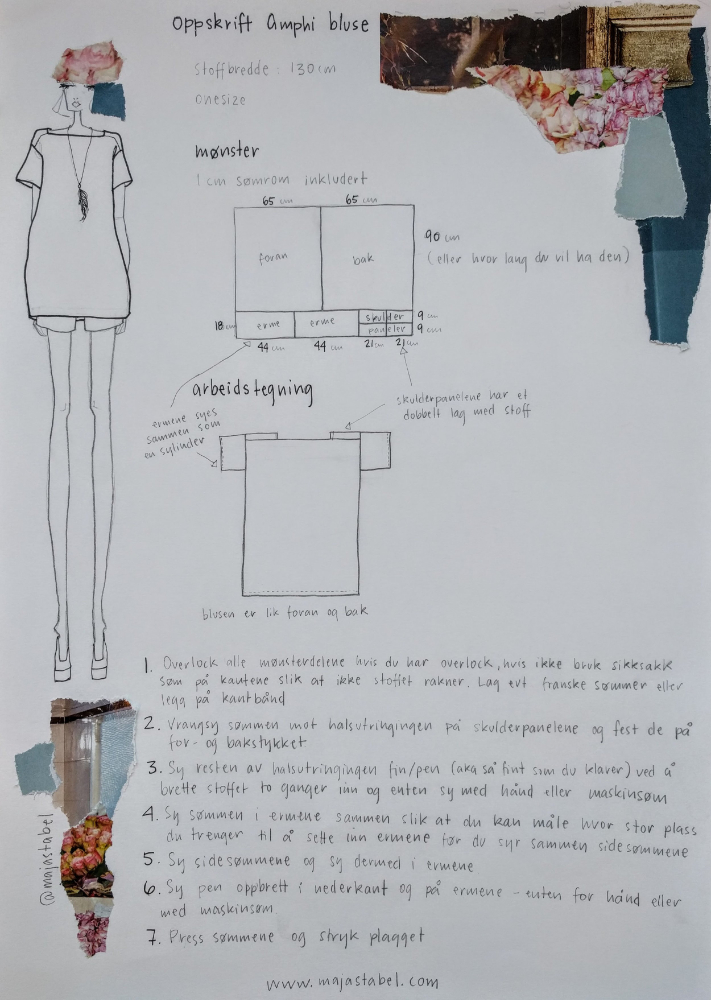 Oppskrift Amphi bluse
Stoffbredde : 130 cm
onesize
mønster
1 cm sømrom inkludert
65 cm 65 cm
foran bak
90 cm
(eller hvor lang du vil ha den)
18 cm erme erme skulder 9 cm
paneler 9 cm
44 cm 44 cm 21 cm 21 cm
arbeidstegning
skulderpanelene har et
dobbelt lag med stoff
ermene syes
sammen som
en sylinder
blusen er lik foran og bak
1. Overlock alle mønsterdelene hvis du har overlock, hvis ikke bruk sikksakk
søm på kantene slik at ikke stoffet rakner. Lag evt franske sømmer eller
legg på kantbånd
2. Vrangsy sømmen mot halsutringingen på skulderpanelene og fest de på
for- og bakstykket
3. Sy resten av halsutringingen fin/pen (aka så fint som du klarer) ved å
brette stoffet to ganger inn og enten sy med hånd eller maskinsøm
4. Sy sømmen i ermene sammen slik at du kan måle hvor stor plass
du trenger til å sette inn ermene før du syr sammen sidesømmene
5. Sy sidesømmene og sy dermed i ermene
6. Sy pen oppbrett i nederkant og på ermene - enten for hånd eller
med maskinsøm
7. Press sømmene og stryk plagget
@majastabel
www.majastabel.com